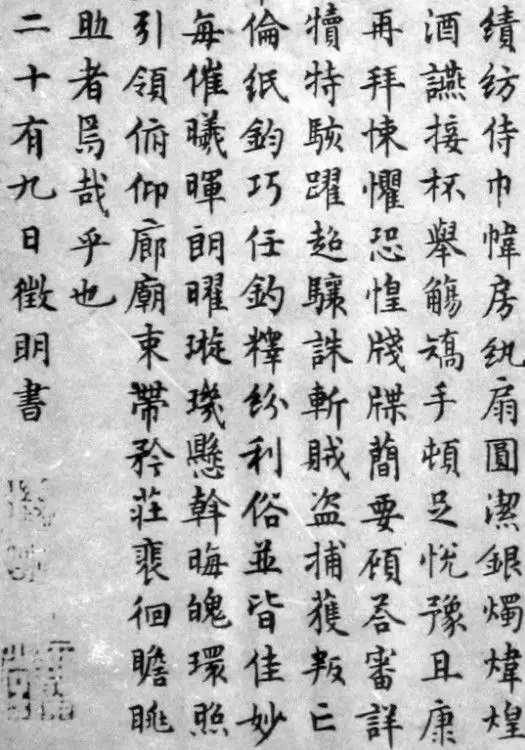 績紡侍巾幃房紈扇圓潔銀燭煒煌
酒讌接杯舉觴矯手頓足悅豫且康
再拜悚懼恐惶牋牒簡要顧荅審詳
犢特駭躍超驤誅斬賊盜捕獲叛亡
倫紙鈞巧任釣釋紛利俗並皆佳妙
每催曦暉朗曜璇璣懸斡晦魄環照
引領俯仰廊廟束帶矜莊裴徊瞻眺
助者焉哉乎也
二十有九日徵明書